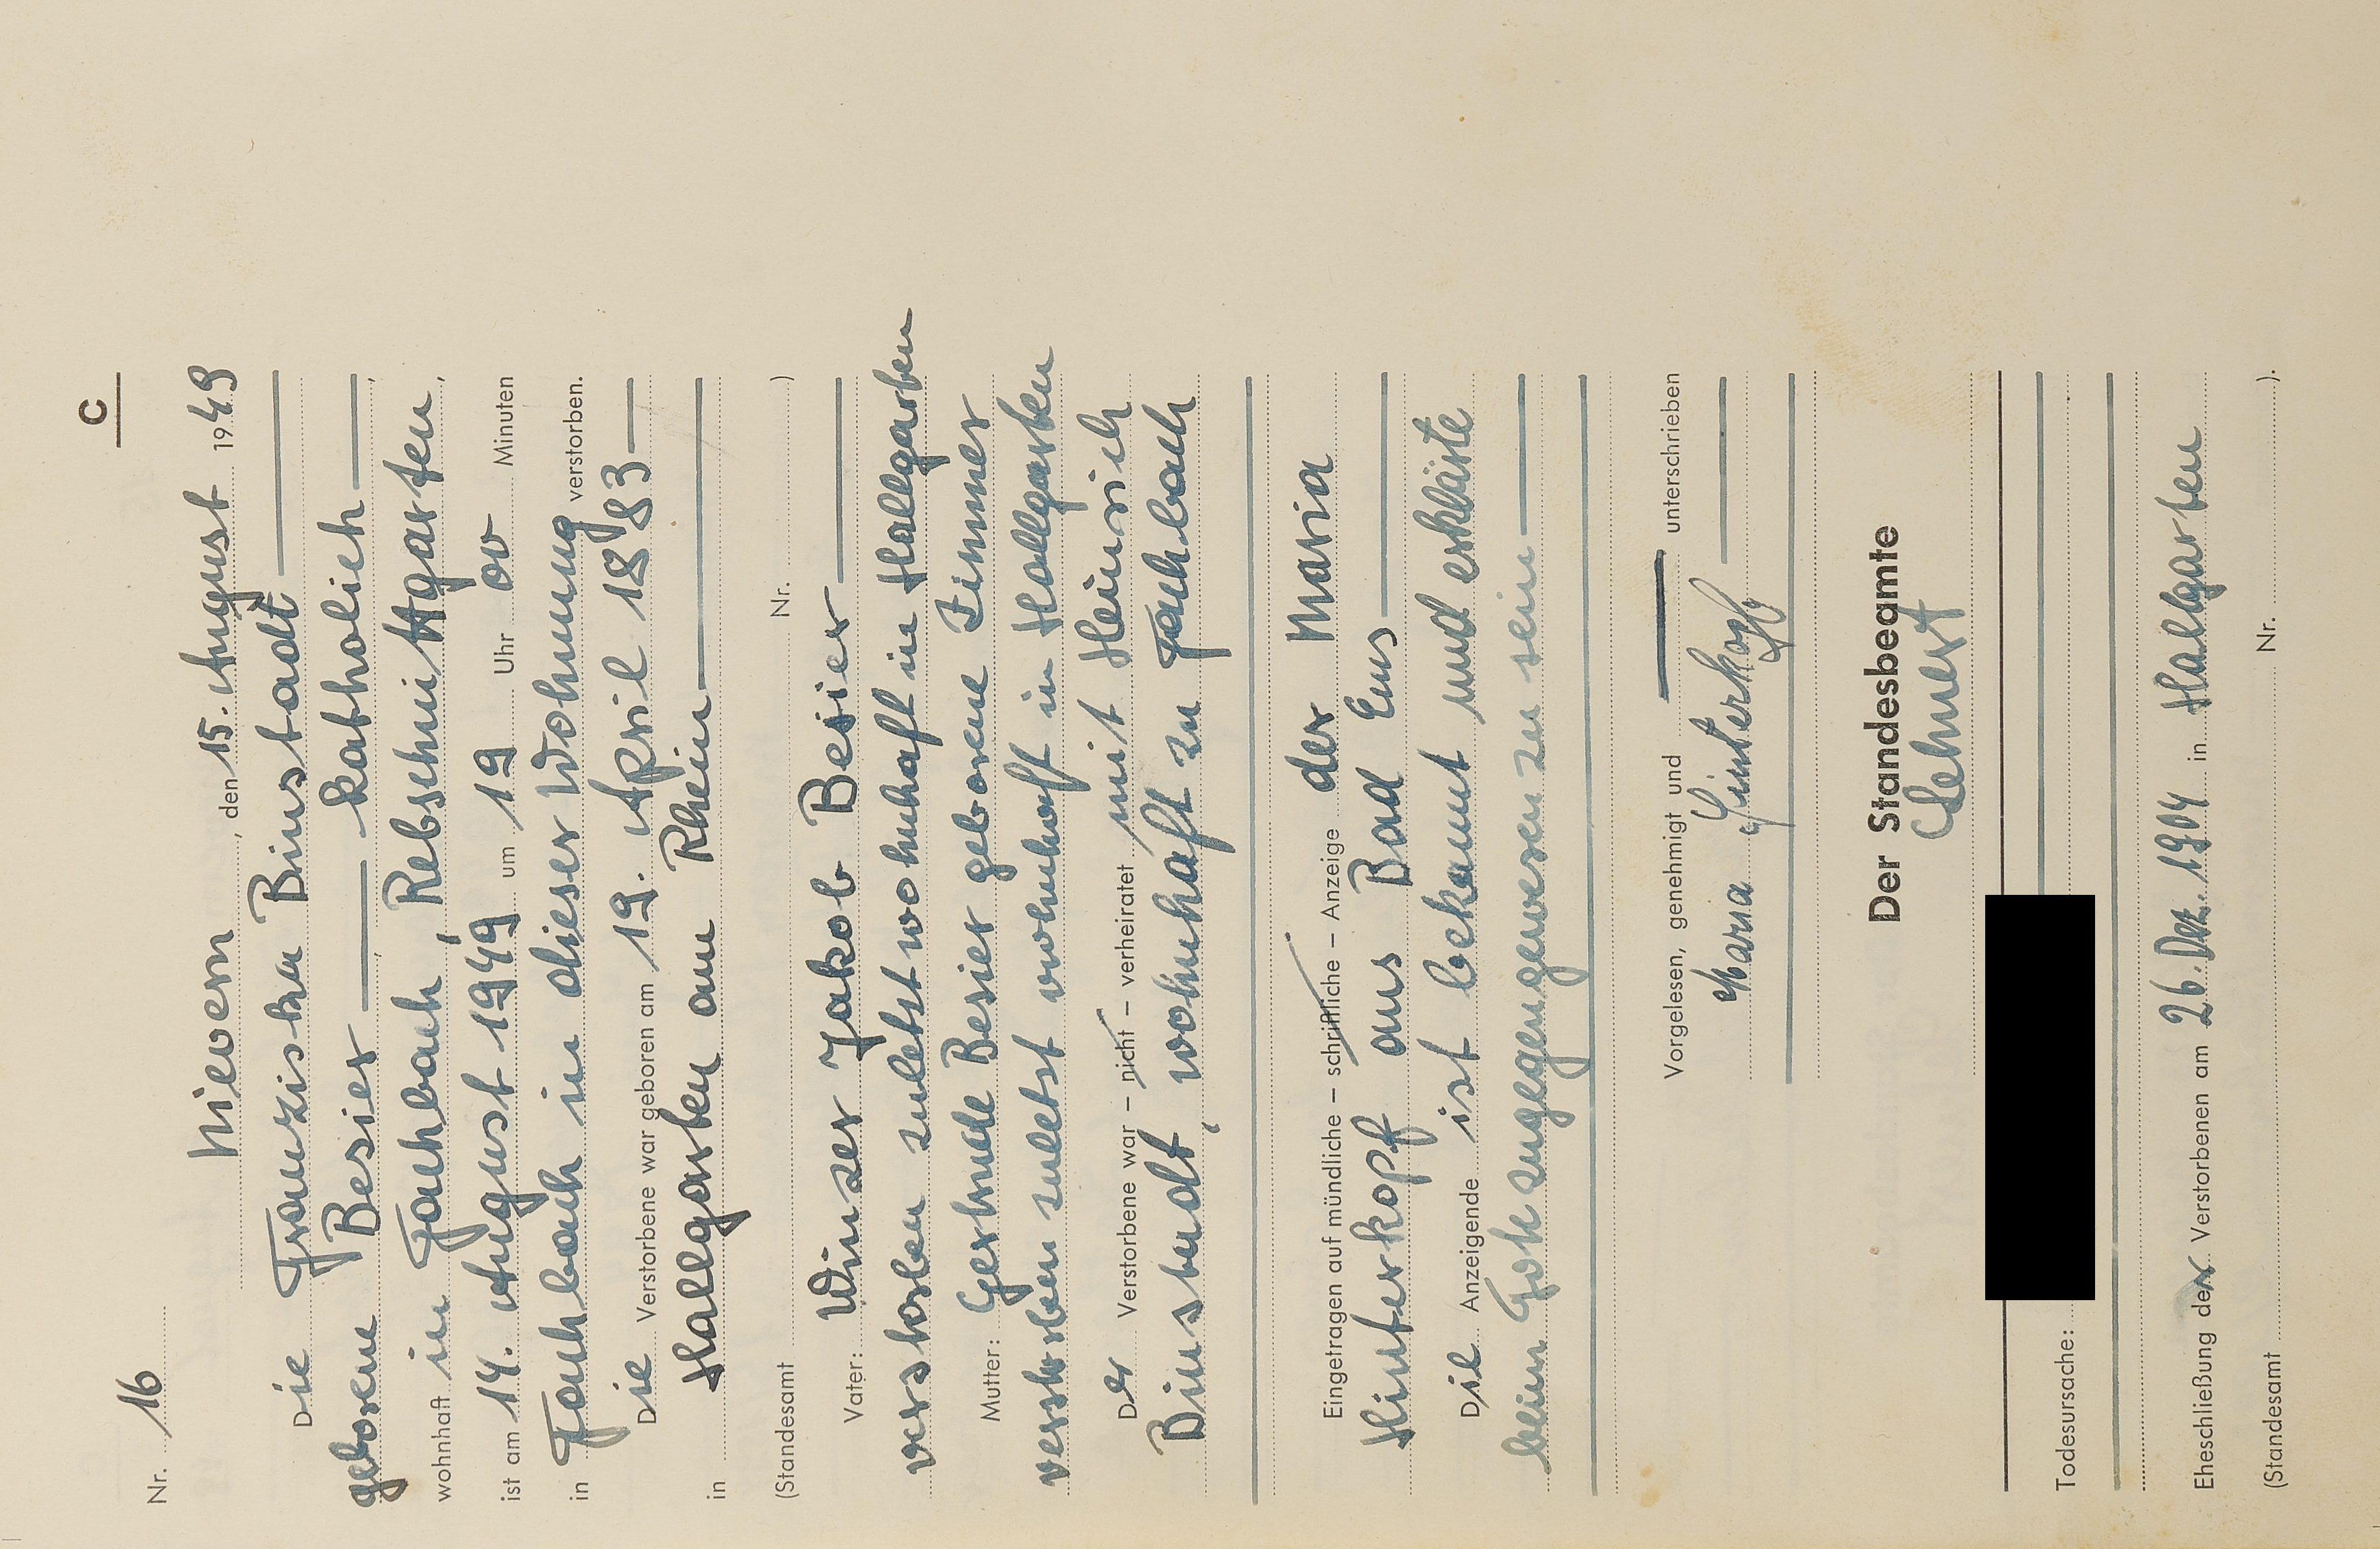 C
Nr. 16
Miewern, den 15. August 1949
Die Franziska Binstadt
geborene Besier katholich
wohnhaft in Fachbach, Rebschnittgarten,
ist am 14. August 1949 um 19 Uhr oo Minuten
in Fachbach in dieser Wohnung verstorben.
Die Verstorbene war geboren am 19. April 1883
in Hallgarten am Rhein
(Standesamt Nr. )
Vater: Winzer Jakob Besier
verstorben zuletzt wohnhaft in Hallgarten
Mutter: Gertrude Besier geborene Zimmer
verstorben zuletzt wohnhaft in Hallgarten
Der Verstorbene war – nicht – verheiratet mit Heinrich
Binstadt, wohnhaft zu Fachbach
Eingetragen auf mündliche – schriftliche – Anzeige der Maria
Hinterkopf aus Bad Ems
Die Anzeigende ist bekannt und erklärte
beim Tode zugegengewesen zu sein
Vorgelesen, genehmigt und unterschrieben
Maria Hinterkopf
Der Standesbeamte
Lehnert
Todesursache:
Eheschließung der Verstorbenen am 26. Dez. 1904 in Hallgarten
(Standesamt Nr. ).